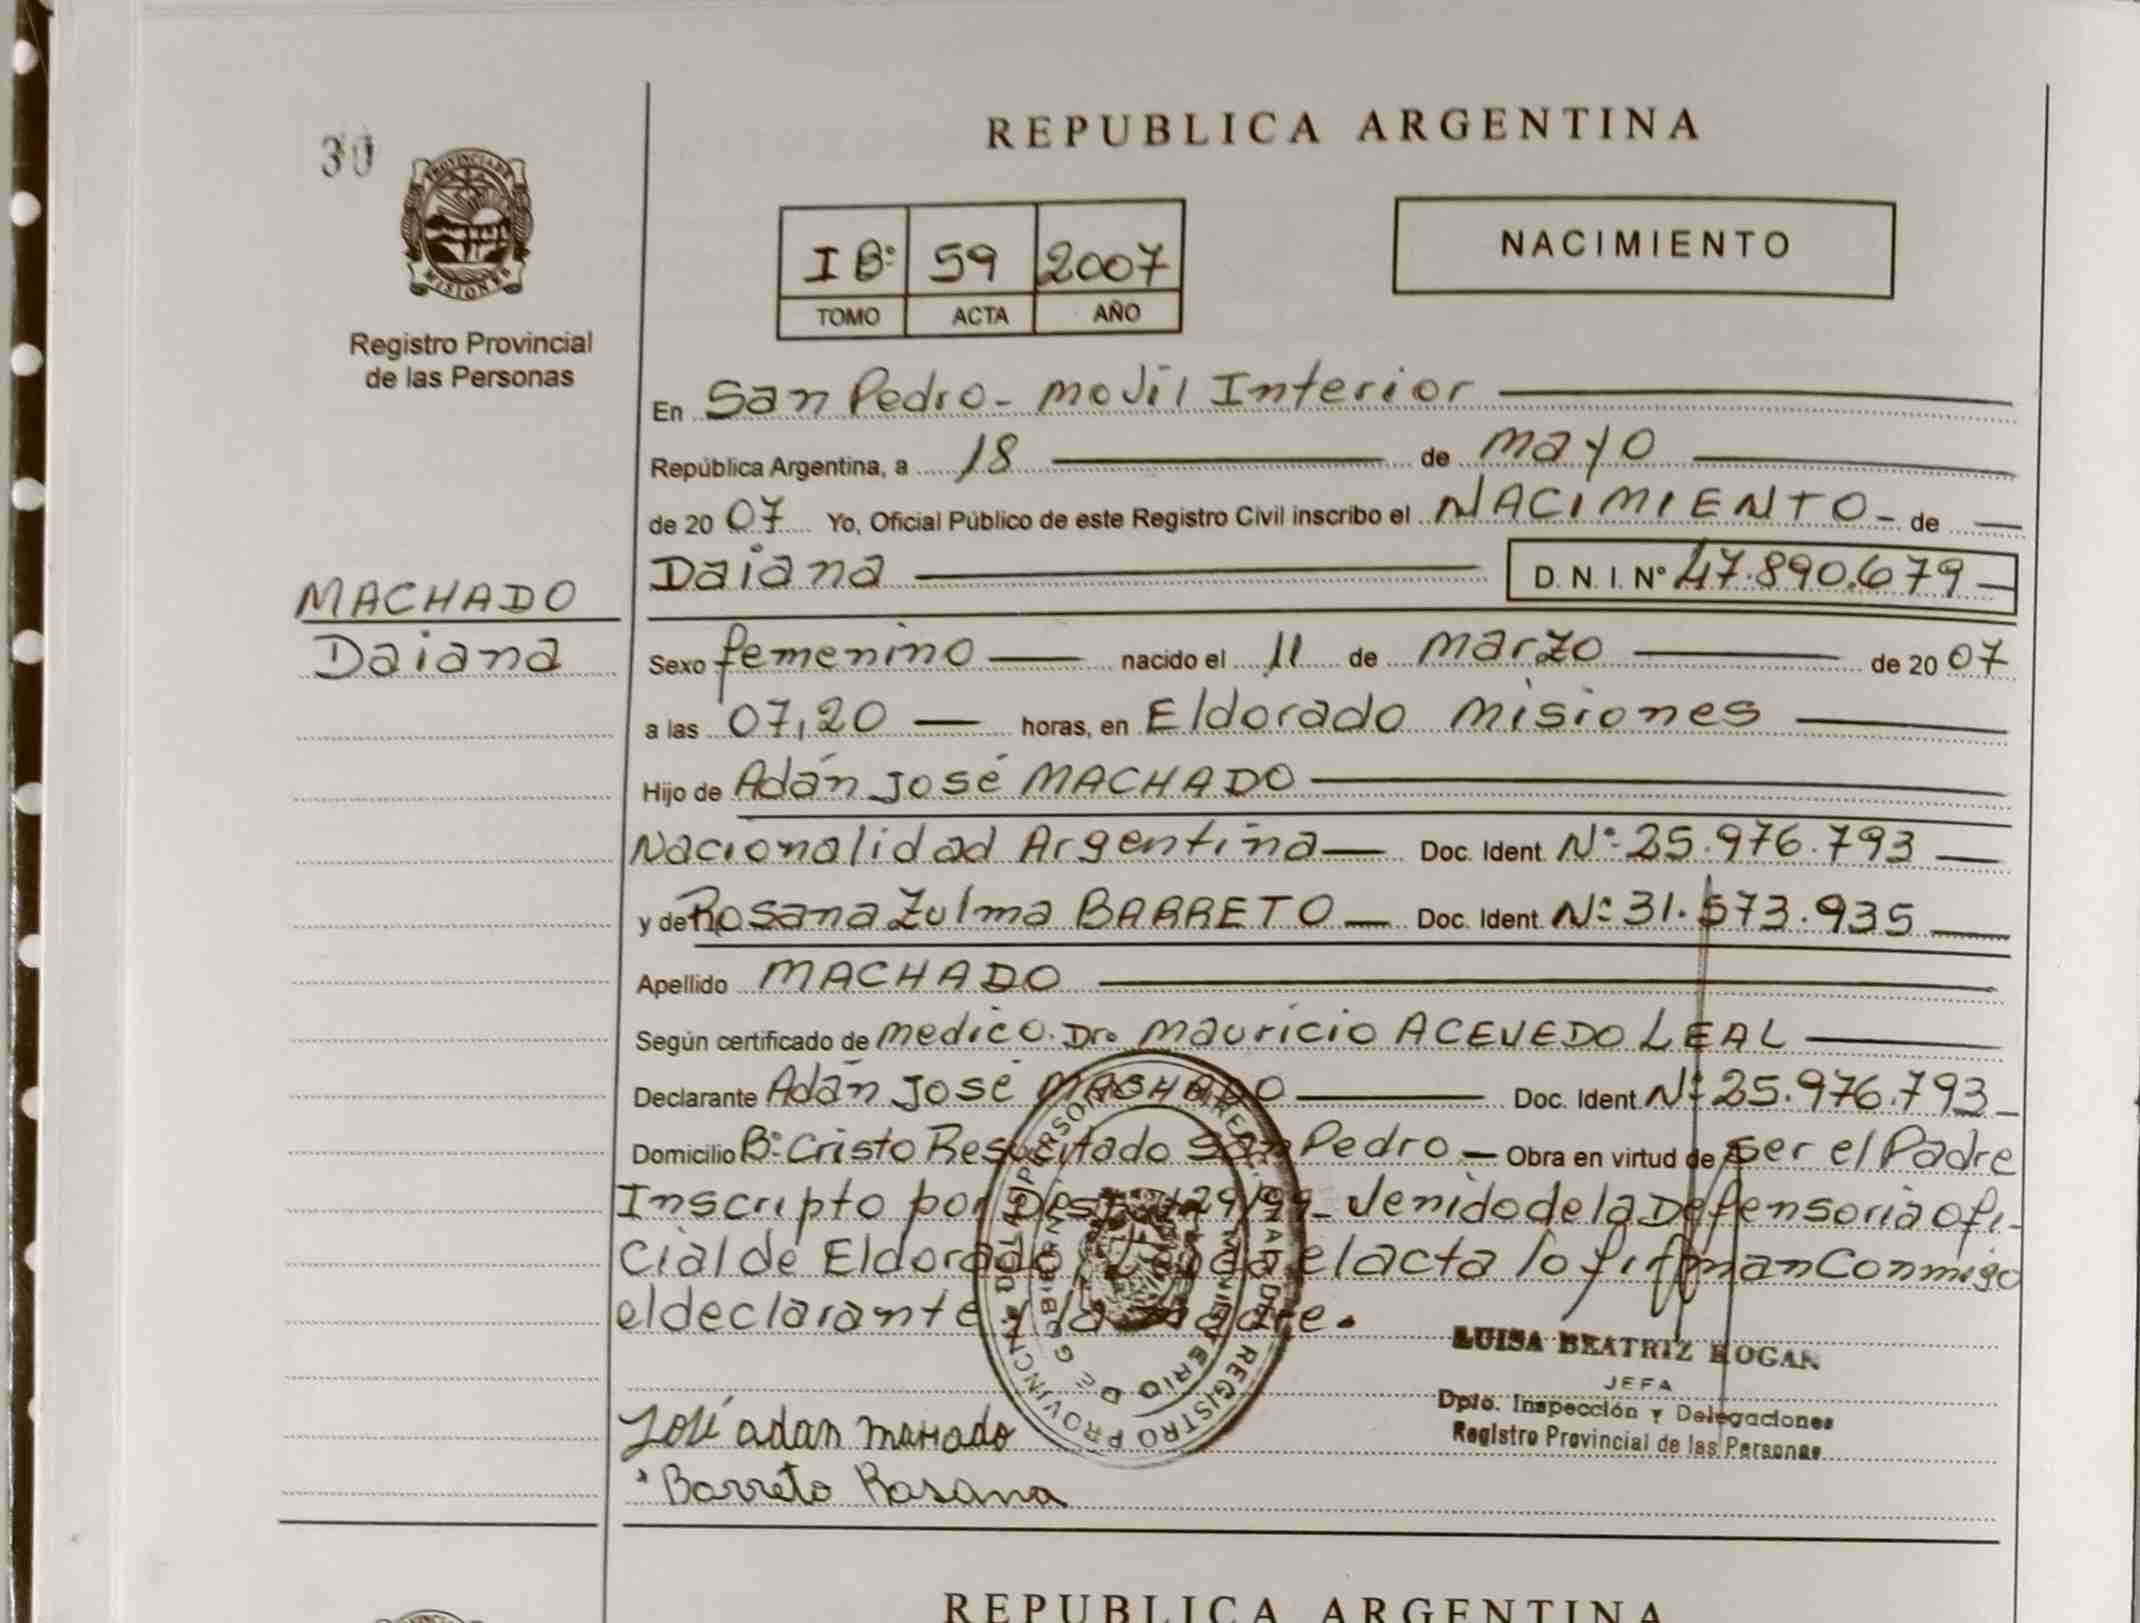 REPUBLICA ARGENTINA
30
PROVINCIA DE
MISIONES
Registro Provincial
de las Personas
I Bº 59 2007
TOMO ACTA AÑO
NACIMIENTO
En San Pedro - movil Interior
República Argentina, a 18 de mayo
de 2007 Yo, Oficial Público de este Registro Civil inscribo el NACIMIENTO - de
Daiana D. N. I. Nº 47.890.679
MACHADO
Daiana
Sexo femenino nacido el 11 de marzo de 2007
a las 07,20 horas, en Eldorado misiones
Hijo de Adán José MACHADO
Nacionalidad Argentina Doc. Ident. Nº 25.976.793
y de Rosana Zulma BARRETO Doc. Ident. Nº 31.573.935
Apellido MACHADO
Según certificado de medico. Dro mauricio ACEVEDO LEAL
Declarante Adán José MACHADO Doc. Ident. Nº 25.976.793
Domicilio Bº Cristo Resucitado San Pedro - Obra en virtud de ser el Padre
Inscripto por 29/99 - Venido de la Defensoria ofi-
cial de Eldorado el acta lo firman Conmigo
el declarante y la madre.
LUISA BEATRIZ HOGAN
JEFA
Dpto. Inspección y Delegaciones
Registro Provincial de las Personas
José adan machado
Barreto Rosana
REPUBLICA ARGENTINA